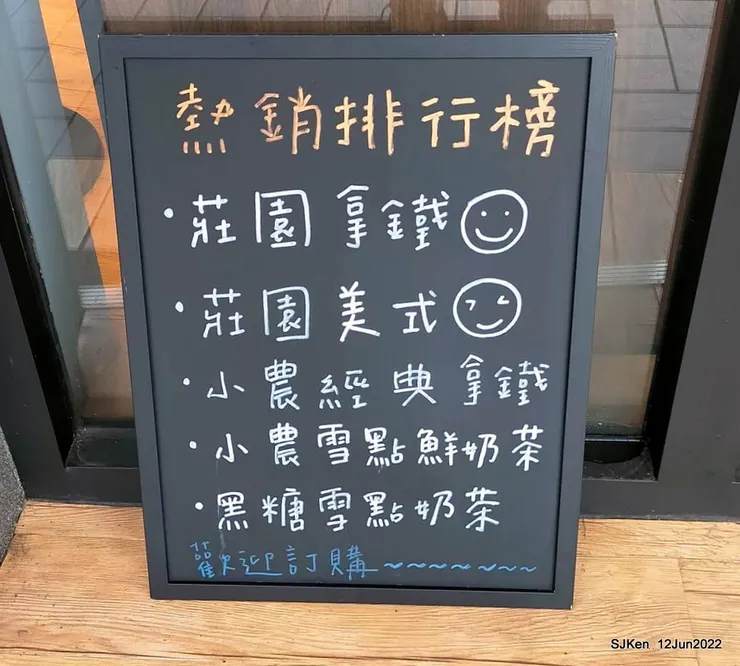 熱銷排行榜
・莊園拿鐵
・莊園美式
・小農經典拿鐵
・小農雪點鮮奶茶
・黑糖雪點奶茶
歡迎訂購~~~~~~~~
SJKen 12Jun2022